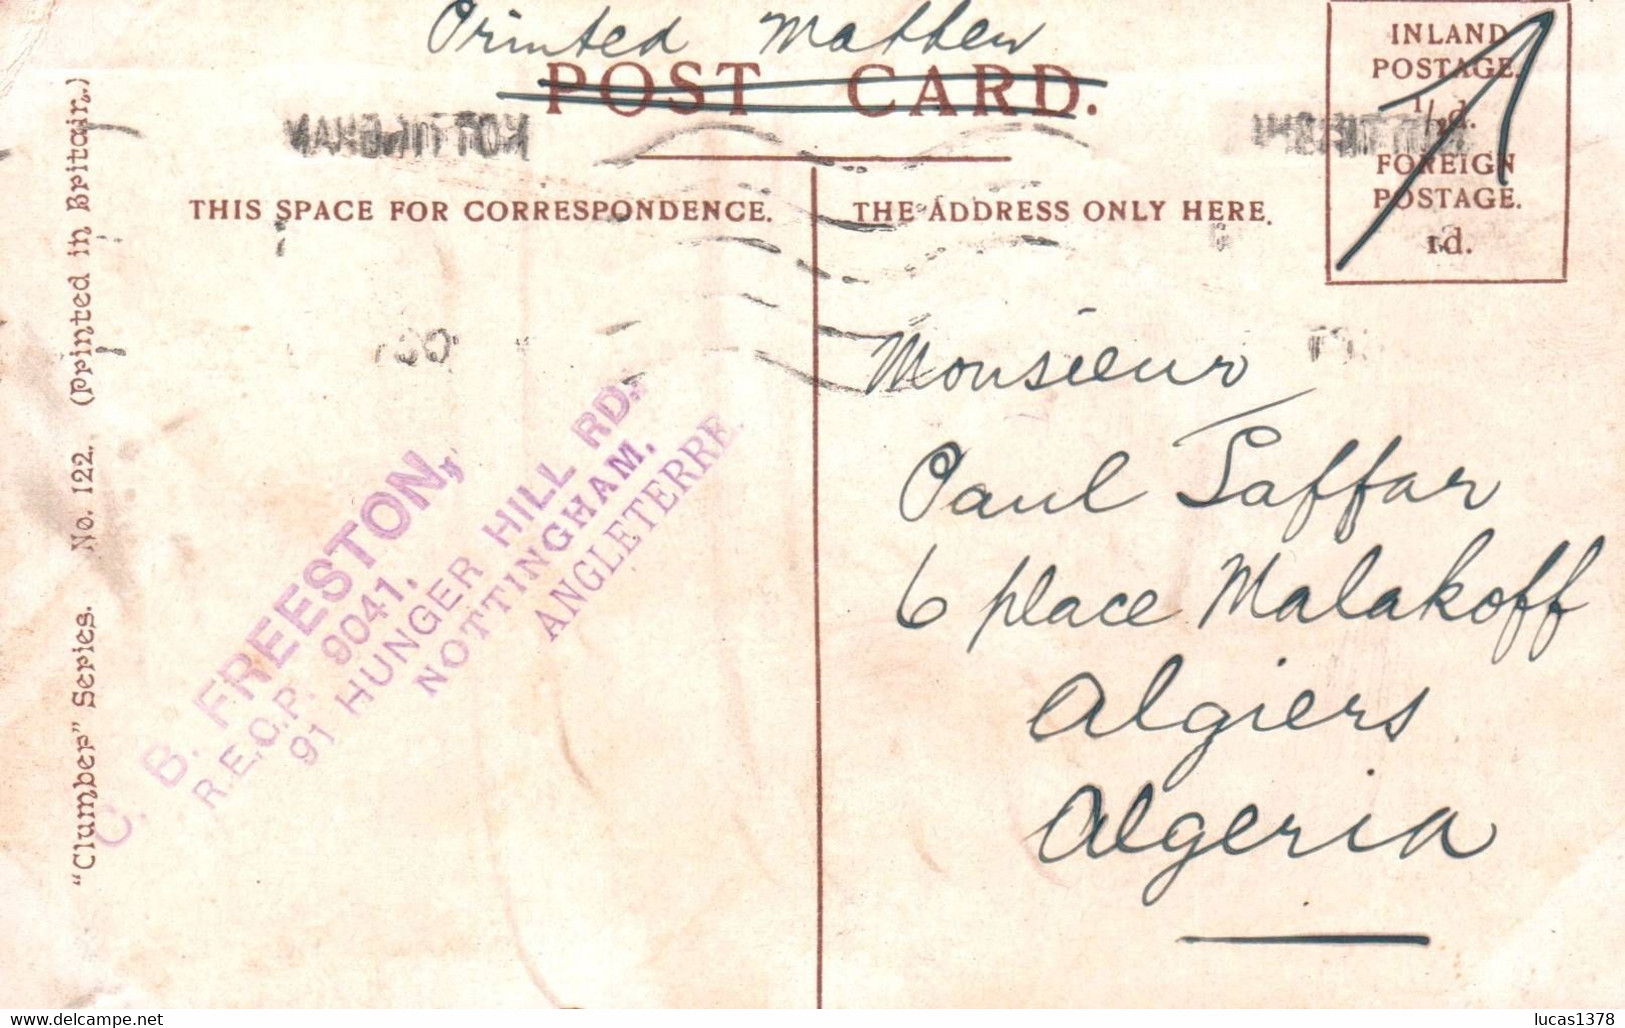 Printed Matter
POST CARD.
INLAND
POSTAGE.
½d.
FOREIGN
POSTAGE.
1d.
THIS SPACE FOR CORRESPONDENCE.
THE ADDRESS ONLY HERE.
"Clumber" Series. No. 122. (Printed in Britain.)
C. B. FREESTON,
R.E.C.P. 9041.
91 HUNGER HILL RD.
NOTTINGHAM.
ANGLETERRE.
Monsieur
Paul Saffar
6 place Malakoff
Algiers
Algeria
www.delcampe.net
lucas1378